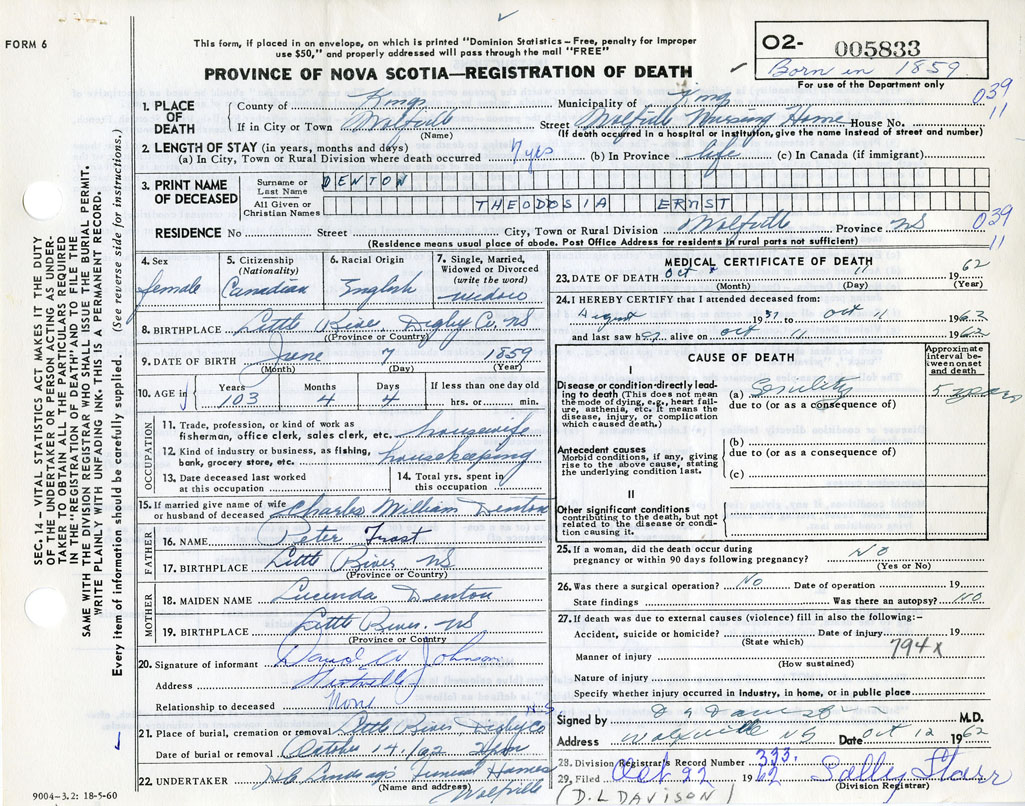 FORM 6
This form, if placed in an envelope, on which is printed "Dominion Statistics – Free, penalty for Improper
use $50," and properly addressed will pass through the mail "FREE"
PROVINCE OF NOVA SCOTIA—REGISTRATION OF DEATH
O2- 005833
Born in 1859
For use of the Department only
039
11
1. PLACE OF DEATH
County of Kings Municipality of Kings
If in City or Town Wolfville Street Wolfville Nursing Home House No.
(Name) (If death occurred in a hospital or institution, give the name instead of street and number)
2. LENGTH OF STAY (in years, months and days)
(a) In City, Town or Rural Division where death occurred 7 yrs (b) In Province life (c) In Canada (if immigrant).
3. PRINT NAME OF DECEASED
Surname or Last Name DENTON
All Given or Christian Names THEODOSIA ERNST
RESIDENCE No Street City, Town or Rural Division Wolfville Province NS
(Residence means usual place of abode. Post Office Address for residents in rural parts not sufficient)
039
11
4. Sex female
5. Citizenship (Nationality) Canadian
6. Racial Origin English
7. Single, Married, Widowed or Divorced (write the word) widow
8. BIRTHPLACE Little River, Digby Co, NS
(Province or Country)
9. DATE OF BIRTH June 7 1859
(Month) (Day) (Year)
10. AGE in Years 103 Months 4 Days 4 If less than one day old hrs. or min.
OCCUPATION
11. Trade, profession, or kind of work as
fisherman, office clerk, sales clerk, etc. housewife
12. Kind of industry or business, as fishing,
bank, grocery store, etc. housekeeping
13. Date deceased last worked at this occupation
14. Total yrs. spent in this occupation
15. If married give name of wife
or husband of deceased Charles William Denton
FATHER
16. NAME Peter Frost
17. BIRTHPLACE Little River NS
(Province or Country)
MOTHER
18. MAIDEN NAME Lucinda Denton
19. BIRTHPLACE Little River. NS
(Province or Country)
20. Signature of informant David W Johnson
Address
Relationship to deceased None
21. Place of burial, cremation or removal Little River Digby Co N-S
Date of burial or removal October 14/62
22. UNDERTAKER Funeral Homes
(Name and address) Wolfville
9004-3.2: 18-5-60
MEDICAL CERTIFICATE OF DEATH
23. DATE OF DEATH Oct 11 1962
(Month) (Day) (Year)
24. I HEREBY CERTIFY that I attended deceased from:
August 19 to Oct 11 1962
and last saw h alive on Oct 11 1962
CAUSE OF DEATH
Approximate interval between onset and death
I
Disease or condition directly leading to death (This does not mean the mode of dying, e.g., heart failure, asthenia, etc. It means the disease, injury, or complication which caused death.)
(a) Senility 5 years
due to (or as a consequence of)
Antecedent causes
Morbid conditions, if any, giving rise to the above cause, stating the underlying condition last.
(b)
due to (or as a consequence of)
(c)
II
Other significant conditions
contributing to the death, but not related to the disease or condition causing it.
25. If a woman, did the death occur during
pregnancy or within 90 days following pregnancy? NO
(Yes or No)
26. Was there a surgical operation? No Date of operation 19
State findings Was there an autopsy? NO
27. If death was due to external causes (violence) fill in also the following:–
Accident, suicide or homicide? Date of injury 19
(State which) 794x
Manner of injury
(How sustained)
Nature of injury
Specify whether injury occurred in industry, in home, or in public place
Signed by D G Davison M.D.
Address Wolfville NS Date Oct 12 1962
28. Division Registrar's Record Number 393.
29. Filed Oct 22 1962 Sally Starr
(Division Registrar)
(D.L DAVISON)
SEC. 14 – VITAL STATISTICS ACT MAKES IT THE DUTY
OF THE UNDERTAKER OR PERSON ACTING AS UNDER-
TAKER TO OBTAIN ALL THE PARTICULARS REQUIRED
IN THE "REGISTRATION OF DEATH" AND TO FILE THE
SAME WITH THE DIVISION REGISTRAR WHO SHALL ISSUE THE BURIAL PERMIT.
WRITE PLAINLY WITH UNFADING INK. THIS IS A PERMANENT RECORD.
Every item of information should be carefully supplied. (See reverse side for instructions.)